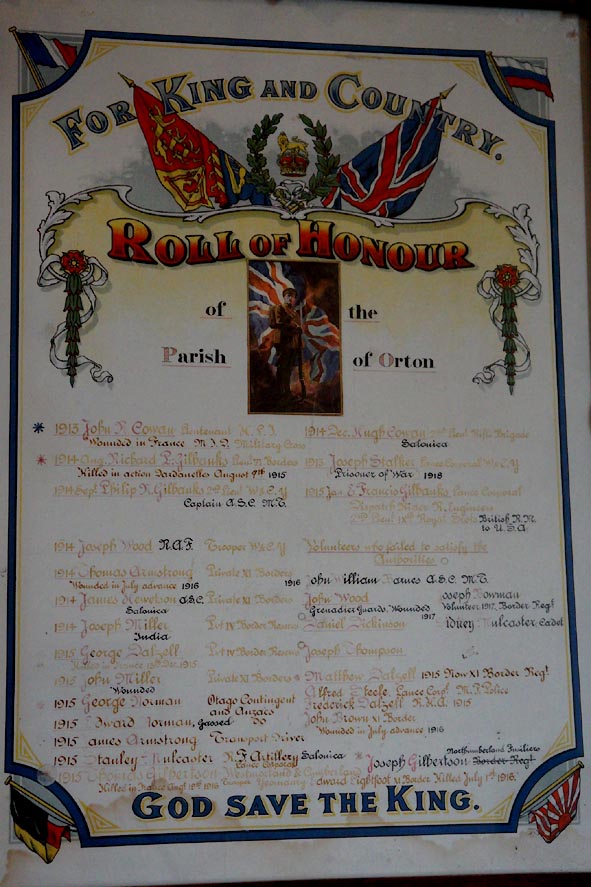 FOR KING AND COUNTRY.
ROLL OF HONOUR
of the
Parish of Orton
1913 John Cowan Lieutenant
Wounded in France M.I.D. Military Cross
1914 Aug. Richard Gilbanks Lieut. Borders
Killed in action Dardanelles August 9th 1915
1914 Sept. Philip R. Gilbanks 2nd Lieut. W.&C.Y
Captain A.S.C. M.T.
1914 Joseph Wood R.A.F. Trooper W.&C.Y
1914 Thomas Armstrong Private XI Borders
Wounded in July advance 1916
1914 James Hewetson A.S.C. Private XI Borders
Salonica
1914 Joseph Miller Pvt IV Border
India
1915 George Dalzell Pvt IV Border
1915 John Miller Private XI Borders
Wounded
1915 George Norman Otago Contingent
and Anzacs
1915 Edward Norman, Gassed Do
1915 James Armstrong Transport Driver
1915 Stanley Mulcaster R.F. Artillery Salonica
Lance Corporal
1915 Thomas Gilbertson Westmorland & Cumberland
Killed in France 1916 Trooper Yeomanry
1914 Dec. Hugh Cowan 2nd Lieut. Rifle Brigade
Salonica
1915 Joseph Stalker Lance Corporal W.&C.Y
Prisoner of War 1918
1915 Jan. E. Francis Gilbanks, Lance Corporal
Dispatch Rider R. Engineers
2nd Lieut. Royal Scots British R.M.
to U.S.A.
Volunteers who failed to satisfy the
Authorities
1916 John William Barnes A.S.C. M.T.
John Wood Joseph Norman
Grenadier Guards, Wounded 1917 Volunteer 1917, Border Regt
Daniel Dickinson Sidney Mulcaster Cadet
Joseph Thompson
Matthew Dalzell 1915 Now XI Border Regt.
Alfred Steele, Lance Corpl. M.P. Police
Frederick Dalzell 1915
John Brown XI Border
Wounded in July advance 1916
Northumberland Fusiliers
Joseph Gilbertson Border Regt
Edward Lightfoot XI Border Killed July 1st 1916.
GOD SAVE THE KING.